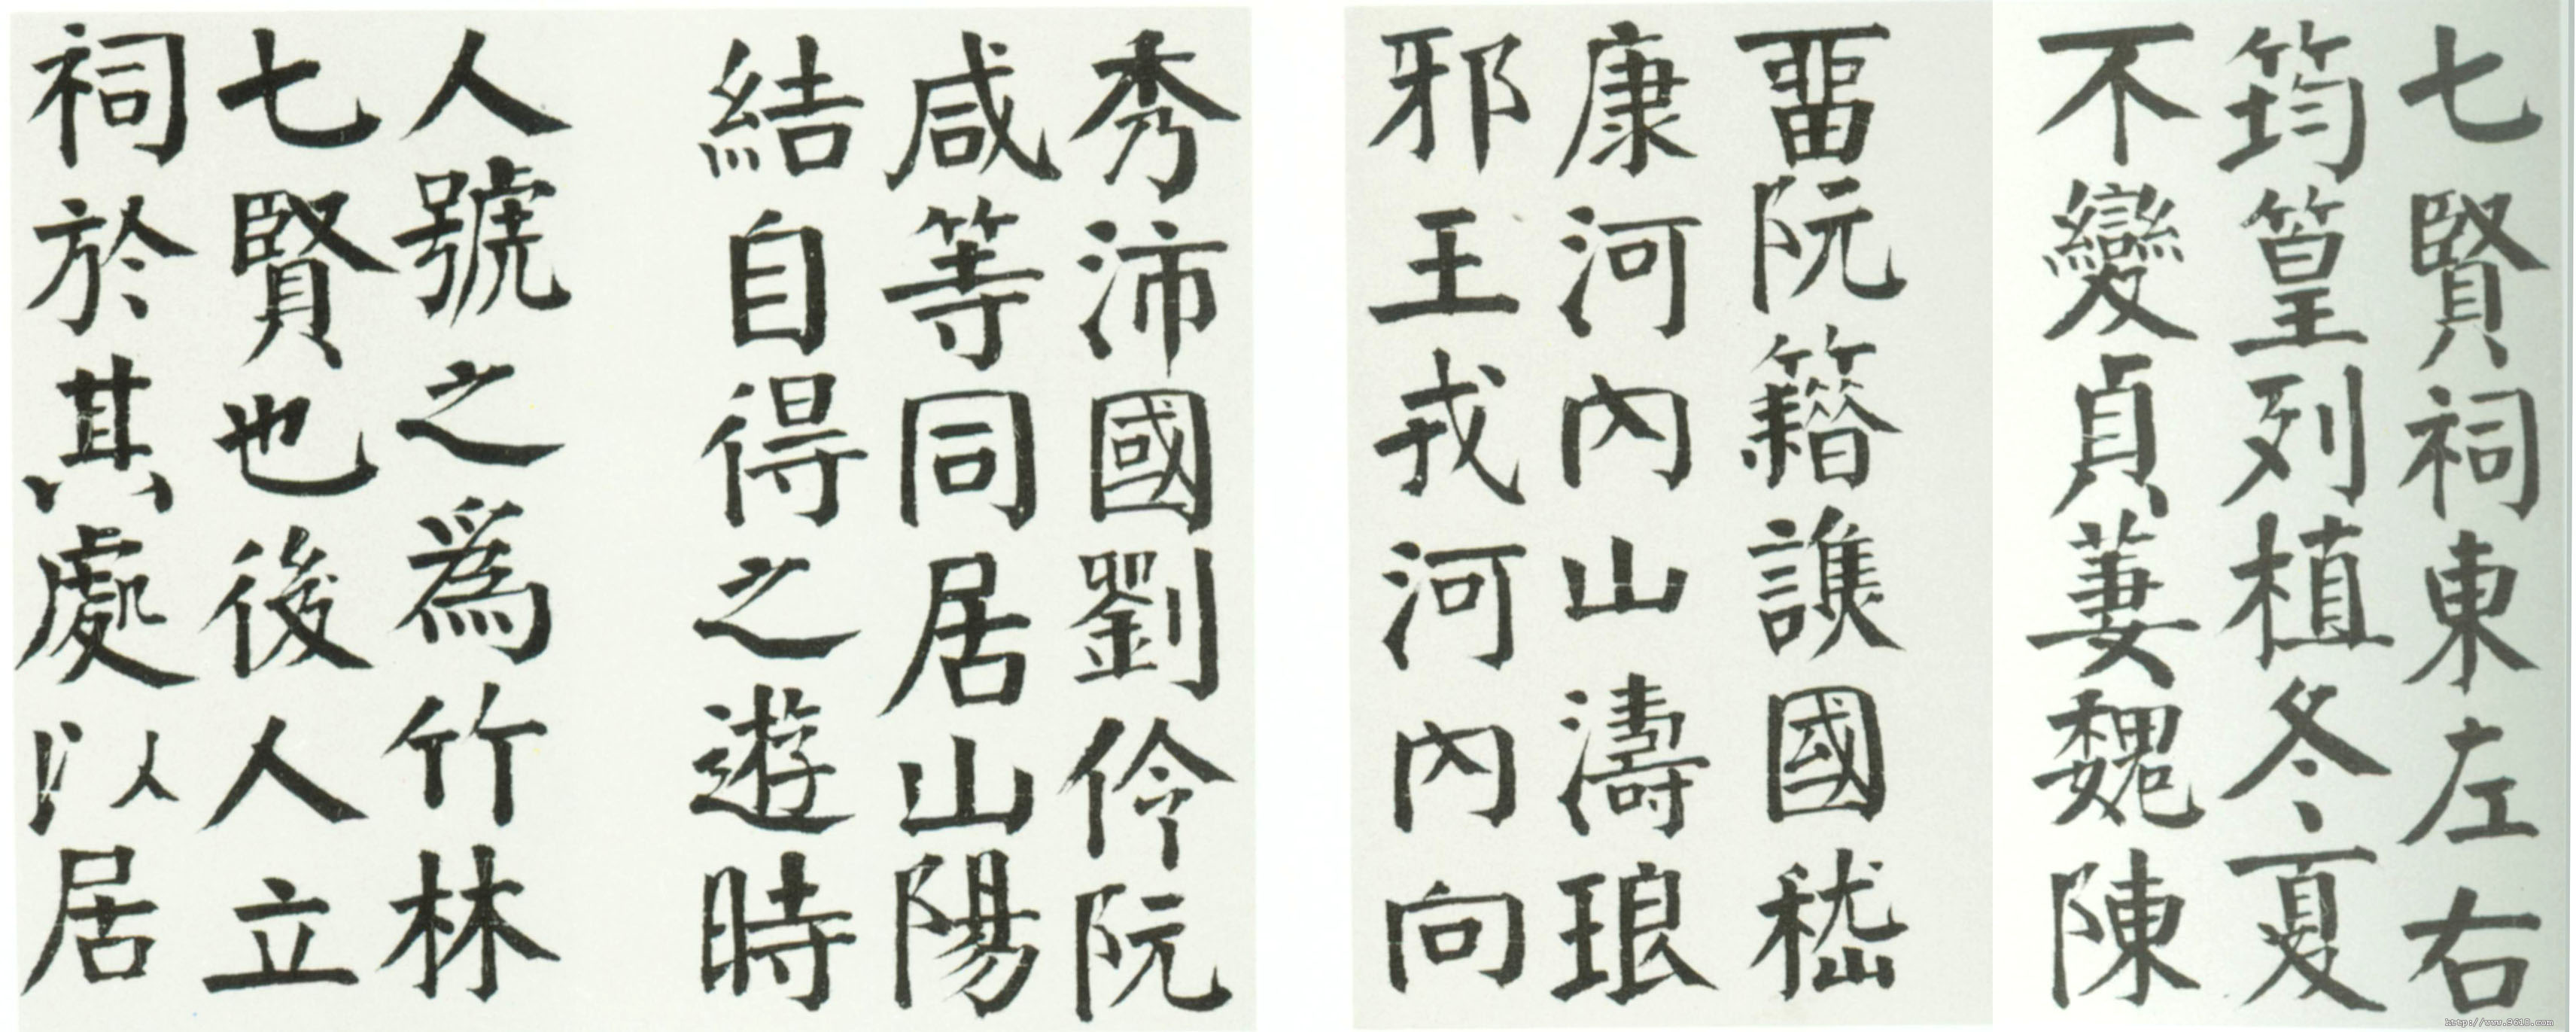 七賢祠東左右
筠篁列植冬夏
不變貞萋魏陳
畱阮籍譙國嵇
康河內山濤琅
邪王戎河內向
秀沛國劉伶阮
咸等同居山陽
結自得之遊時
人號之為竹林
七賢也後人立
祠於其處以居
http://www.9610.com